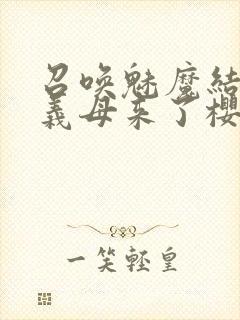 召唤魅魔结
义母来了樱
一笑轻皇